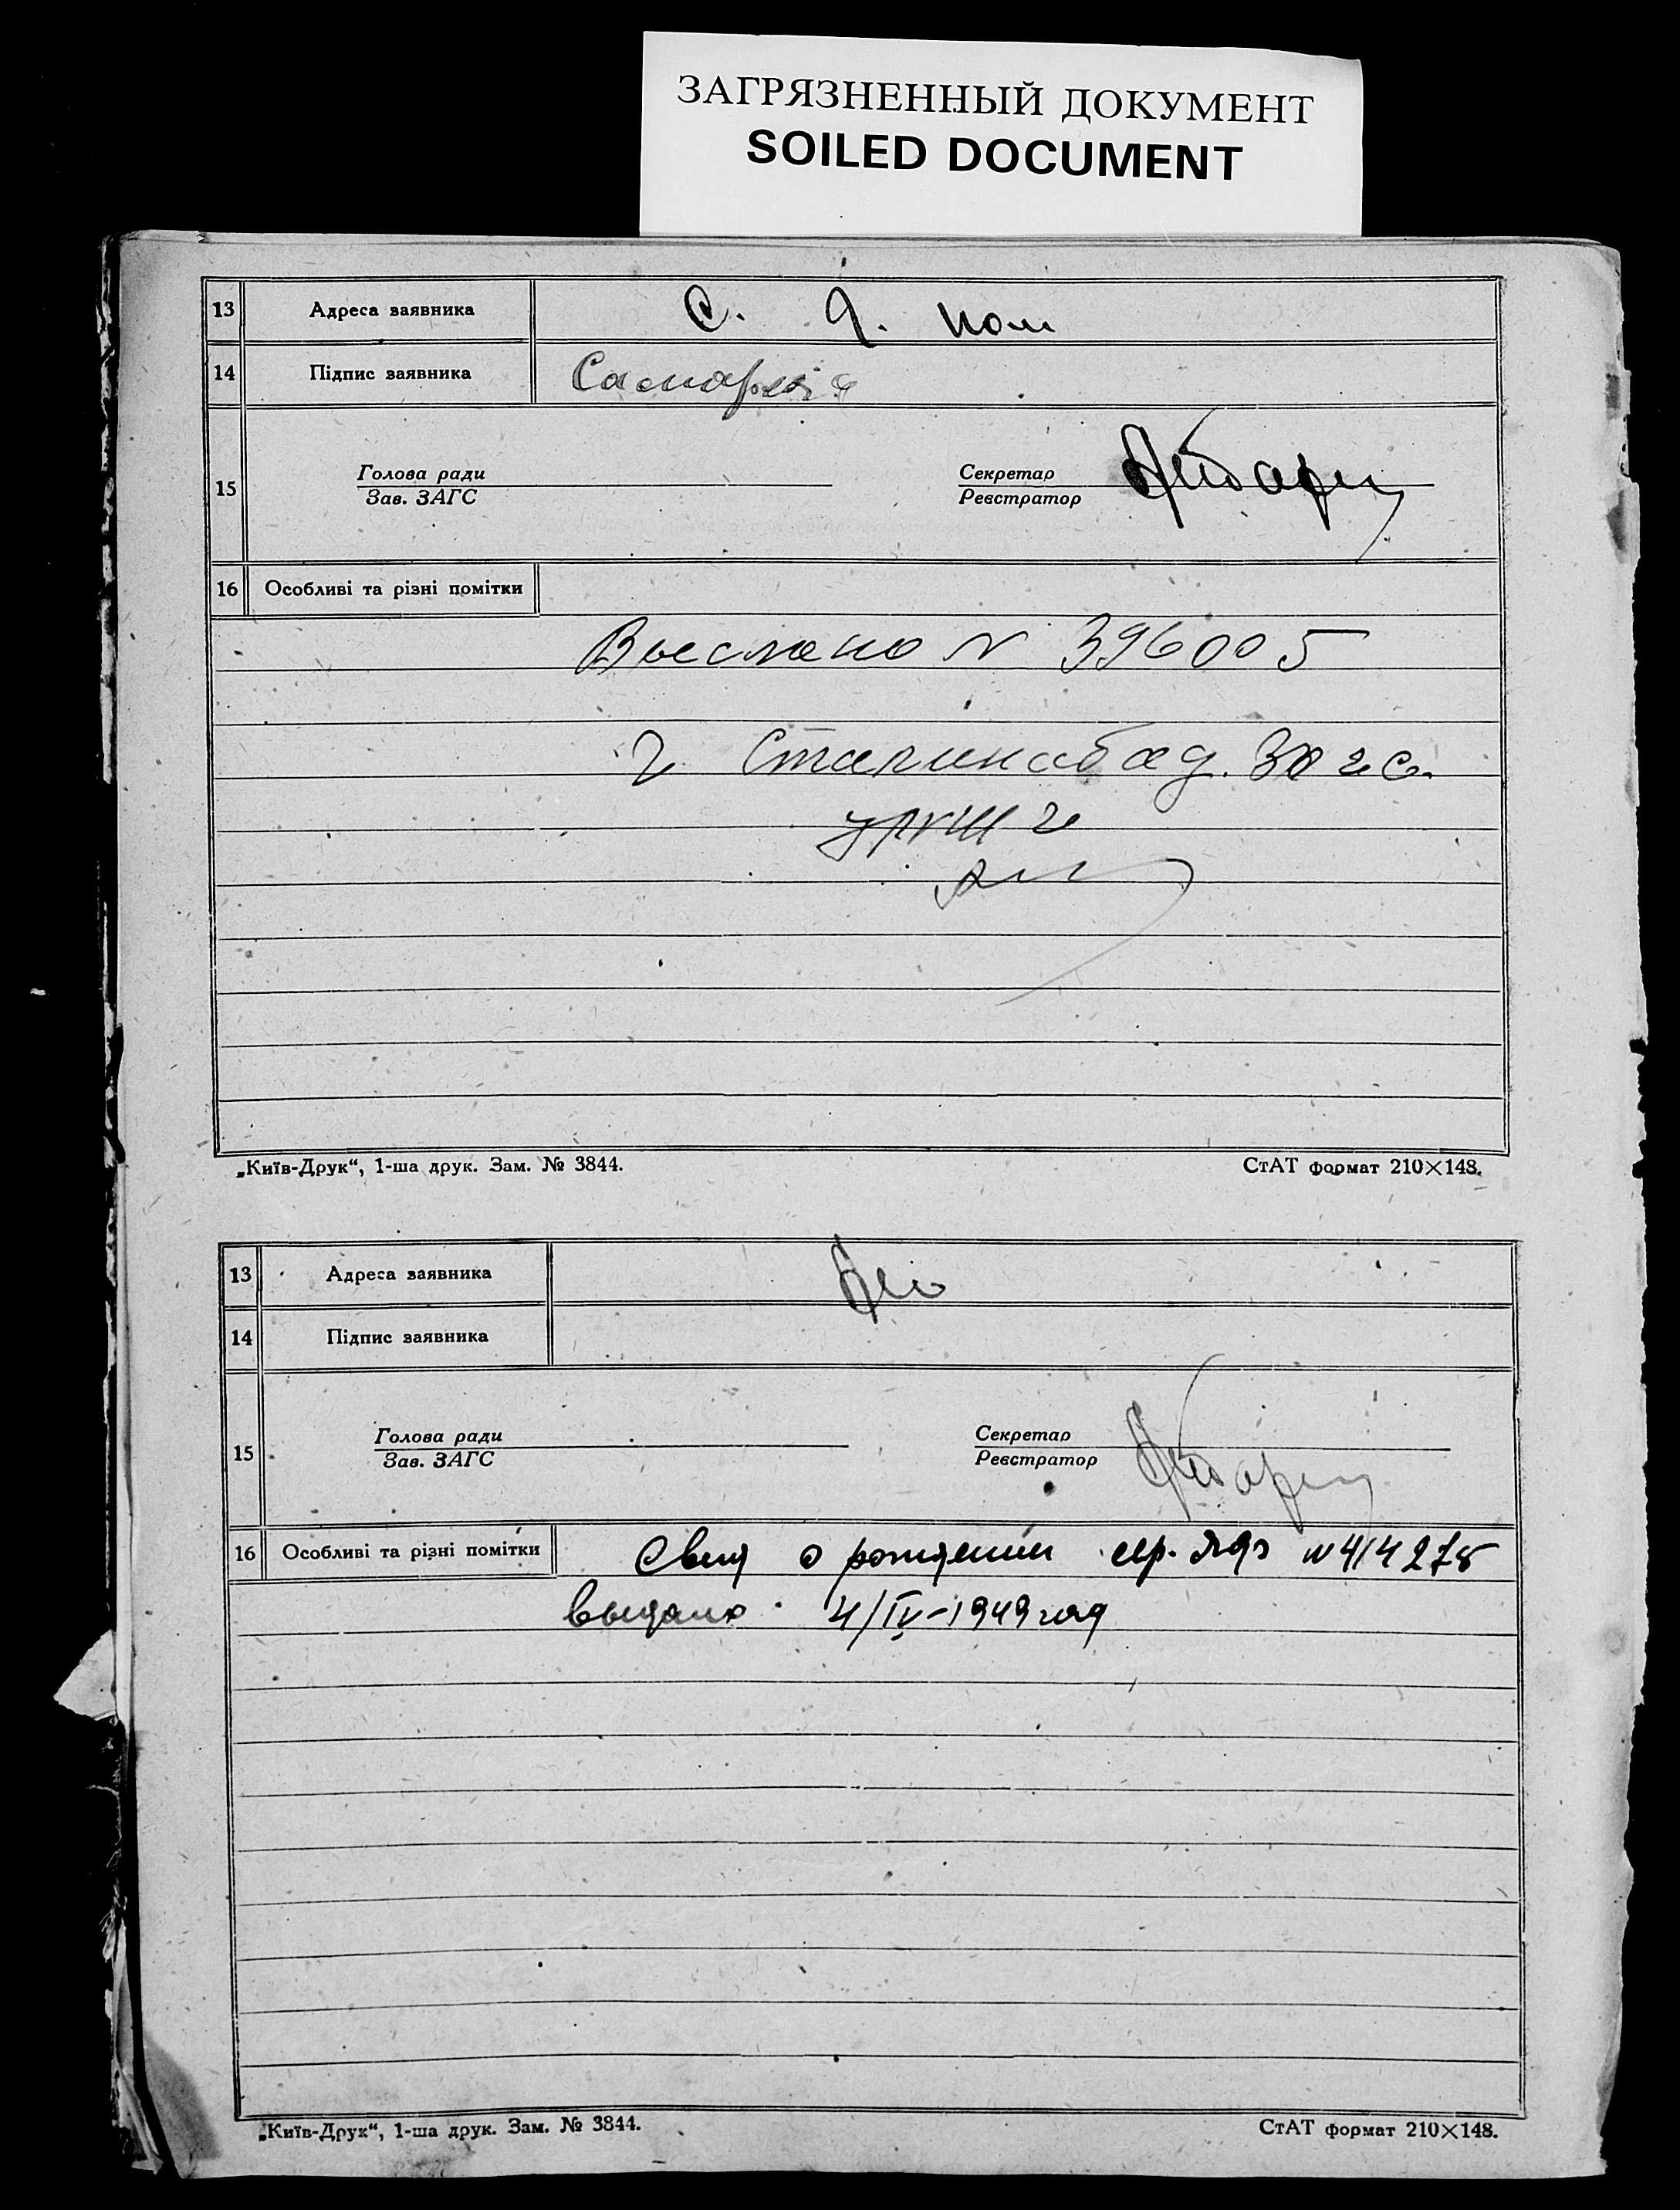 ЗАГРЯЗНЕННЫЙ ДОКУМЕНТ
SOILED DOCUMENT
13 Адреса заявника С. Я. пом
14 Підпис заявника
15 Голова ради Секретар
Зав. ЗАГС Реєстратор
16 Особливі та різні помітки
Выслано N 396005
г Сталинабад. Загс.
„Київ-Друк“, 1-ша друк. Зам. № 3844. СтАТ формат 210×148.
13 Адреса заявника
14 Підпис заявника
15 Голова ради Секретар
Зав. ЗАГС Реєстратор
16 Особливі та різні помітки Свид о рождении сер. N 414278
выдано 4/IV-1949 год
„Київ-Друк“, 1-ша друк. Зам. № 3844. СтАТ формат 210×148.